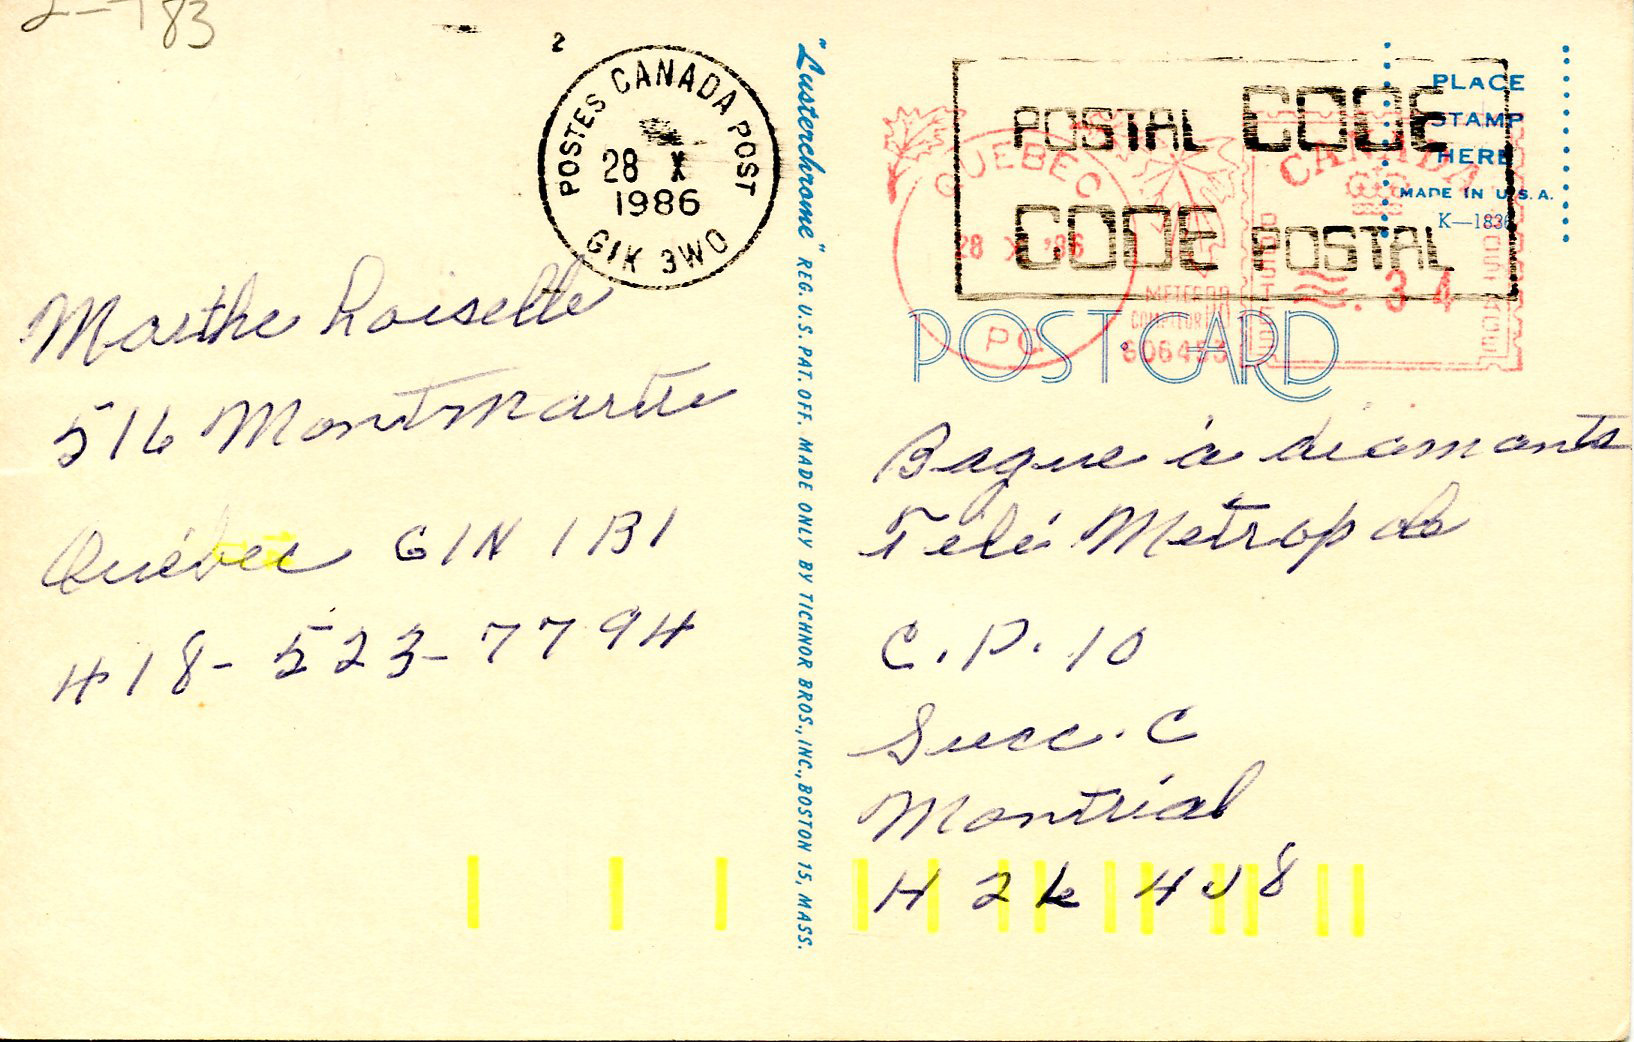 2-783
2
POSTES CANADA POST
28 X
1986
G1K 3W0
Marthe Loiselle
516 Montmartre
Québec G1N 1B1
418-523-7794
"Lusterchrome" REG. U.S. PAT. OFF. MADE ONLY BY TICHNOR BROS., INC., BOSTON 15, MASS.
POSTAL CODE
CODE POSTAL
PLACE
STAMP
HERE
MADE IN U.S.A.
K-1836
QUEBEC
28 X '86
PQ
METER
606453
CANADA
POSTES
POSTAGE
.34
POST CARD
Bague à diamants
Télé Metropole
C.P. 10
Succ. C
Montréal
H2k 4J8